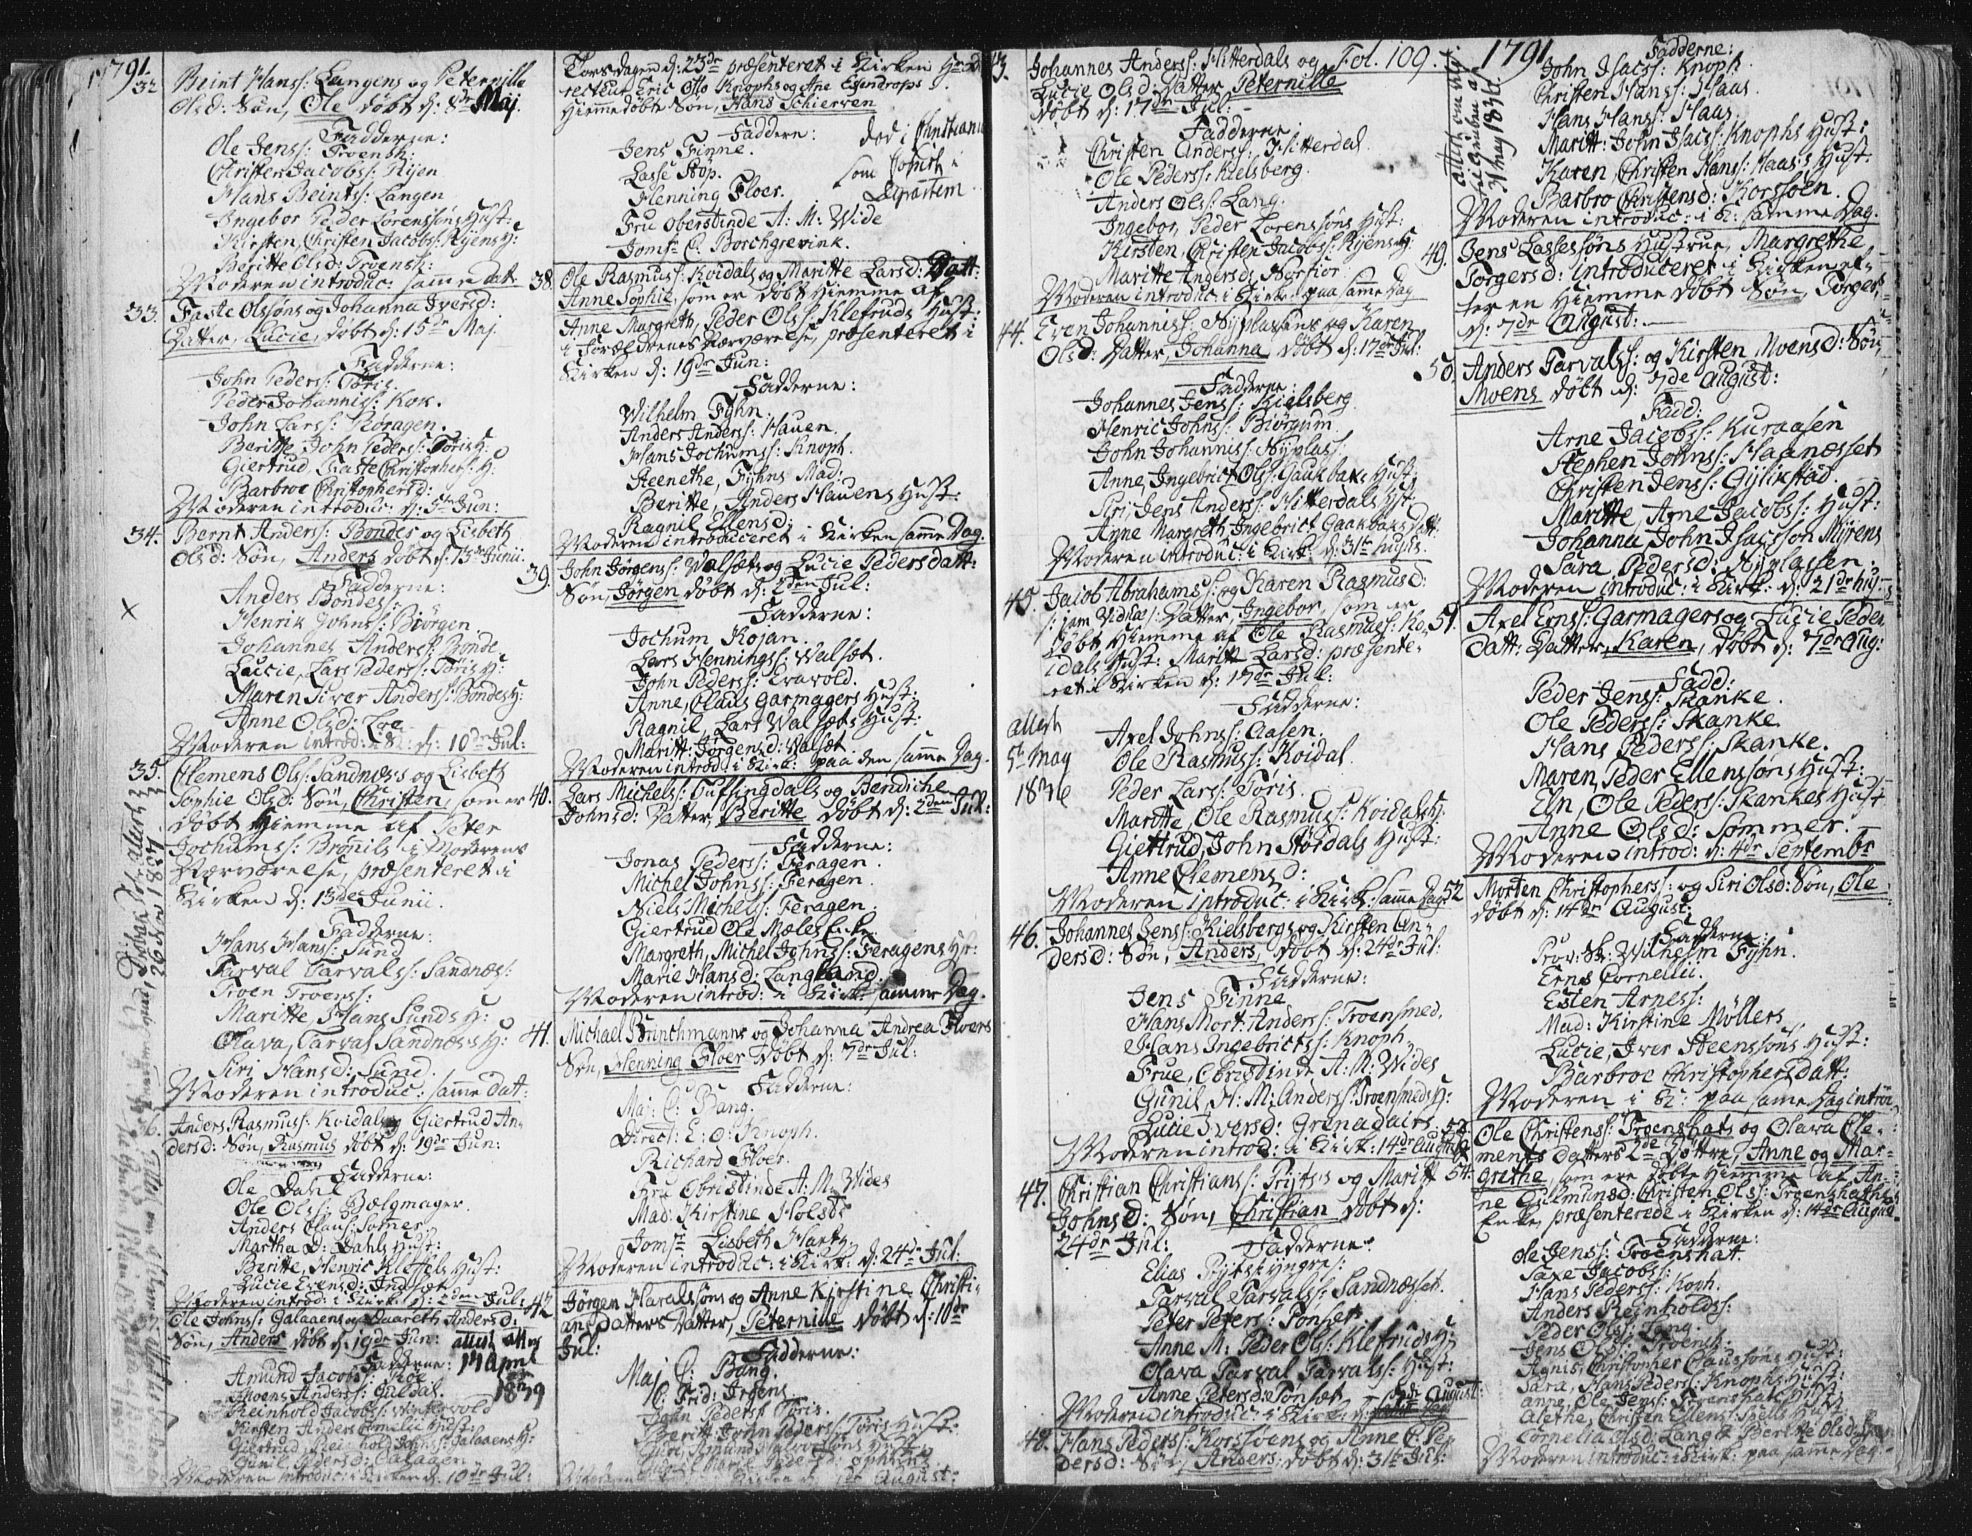 1791.
32. Beint Hans∫: Langens og Peternille
Olsd: Søn, Ole døbt d: 8de Maj.
Fadderne:
Ole Jens∫: Troensh:
Christen Jacobs∫: Ryen
Hans Beints∫: Langen
Ingebor Peder Lorenssøns Hust:
Kirsten, Christen Jacobs∫: Ryens H:
Beritte Olsd: Troensh:
Moderen introduc: samme dat
33. Faste Olssøns og Johanna Iversd:
Datter, Lucie, døbt d: 15de Maj.
Fadderne:
John Peders∫: Tøris.
Peder Johannis∫: Kok.
John Lars∫: Koragen.
Beritte John Peders∫: Tøris H:
Giertrud Faste Christophers∫: H:
Barbroe Christophersd:
Moderen introduc: d: 5te Jun:
34. Bernt Anders∫: Bondes og Lisbeth
Olsd: Søn, Anders døbt d: 13de Junii:
Fadderne:
Anders Bondes∫:
Henrik Johns∫: Biørgen.
Johannes Anders∫: Bonde
Lucie, Lars Peders∫: Tøris H:
Maren Siver Anders∫: Bondes H:
Anne Olsd:
Moderen introd: i K: d: 10de Jul:
35. Clemens Ols∫: Sandnæs's og Lisbeth
Sophie Olsd: Søn, Christen, som er
døbt hiemme af Peter
Jochums∫: Brønils i Moderens
Nærværelse, præsenteret i
Kirken d: 13de Junii.
Fadderne:
Hans Hans∫: Sund
Tarval Tarvals∫: Sandnæs∫:
Troen Troens∫:
Maritte, Hans Sunds H:
Olava, Tarval Sandnæs's H:
Siri Hansd: Sund.
Moderen introduc: samme dat:
36. Anders Rasmus∫: Koidals og Giertrud An-
dersd: Søn, Rasmus døbt d: 19de Jun:
Fadderne:
Ole Dahl
Ole Ols∫: Bælgmager.
Anders Claus∫: Somer
Martha D: Dahls Hust:
Beritte, Henric Kleffels Hust:
Lucie Evensd: Indsæt
Moderen introd: i Kirk: d: 2den Jul:
Ole Johns∫: Galaaens og Maareth Andersd:
Søn, Anders døbt d: 19de Jun:
attest
14 April
1839
Fadderne:
Amund Jacobs∫: Roe
Moens Anders∫: Guldal.
Reinhold Jacobs∫:
Kirsten Anders Cornelii Hust:
Giertrud, Reinhold Johns∫: Galaaens H:
Gunil Pedersd: Galaaen
Moderen introduc: i Kirken d: 10de Jul:
Torsdagen d: 23de præsenteret i Kirken Hr Di-
recteur Eric Otto Knophs og Ane Elsendrops
hiemmedøbt Søn, Hans Schierven
Faddern:
død i Christiania
som Combt: i
Departem
Jens Finne.
Lasse Støp.
Henning Floer.
Fru Oberstinde A: M: Wide
Jomfr: C: Borchgrevink.
38. Ole Rasmus∫: Koidals og Maritte Larsd: Datt:
Anne Sophie, som er døbt hiemme af
Anne Margreth, Peder Ols∫: Klefruds Hust:
i Forældrenes nærværelse, præsenteret i
Kirken d: 19de Jun:
Fadderne:
Wilhelm Fyhn.
Anders Anders∫: Hauen.
Hans Jochums∫: Knoph.
Steenethe, Fyhns Mad:
Beritte, Anders Hauens Hust:
Ragnil Ellensd:
Moderen introduceret i Kirken samme Dag.
39. John Jørgens∫: Walsæts og Lucie Pedersdatt:
Søn, Jørgen døbt d: 2den Jul:
Fadderne:
Jochum Kojan.
Lars Hennings∫: Walsæt.
John Peders∫: Evavold.
Anne, Claus Garmagers Hust:
Ragnil Lars Walsæts Hust:
Maritt: Jørgensd: Walsæt
Moderen introd: i Kirk: paa den samme Dag.
40. Lars Michels∫: Tufsingdals og Bendicke
Johnsd: Datter, Beritte døbt d: 2den Jul:
Fadderne:
Jonas Peders∫: Feragen.
Michel Johns∫: Feragen.
Niels Michels∫: Feragen.
Giertrud Ole Mæles Enke
Margreth, Michel Johns∫: Feragens H:
Marie Hansd: Langland.
Moderen introd: i Kirk: samme Dag.
41. Michael Brinchmanns og Johanna Andrea Floers
Søn, Henning Floer døbt d: 7de Jul:
Fadderne:
Maj: C: Bang.
Direct: E: O: Knoph.
Richard Floer.
Fru Obristinde A: M: Wides
Mad: Kirstine Holst
Jomfr: Lisbeth Hartz
Moderen introduc: i Kirk: d: 24de Jul:
42. Jørgen Haralssøns og Anne Kirstine Christi-
ansdatters Datter, Peternille døbt d: 10de
Jul:
Fadderne:
Maj: C: Bang.
C: Frid: Irgens
John Peders∫: Tøris.
Beritt: John Peders∫: Tøris Hust:
Siri, Amund Halvorssøns Hust:
Moderen Kirken d: 1de August:
43. Johannes Anders∫: Hitterdals og
Lucie Olsd: Datter, Peternille
døbt d: 17de Jul:
Fol. 109.
Fadderne:
Christen Anders∫: Hitterdal.
Ole Peders∫: Kielsberg.
Anders Ols∫: Lang.
Ingebor, Peder Lorenssøns Hust:
Kirsten, Christen Jacobs∫: Ryens H:
Maritte Andersd: Norfior
Moderen introduc: i Kirk: paa samme Dag
44. Even Johannis∫: Nyplassens og Karen
Olsd: Datter, Johanna døbt d: 17de Jul:
Fadderne:
Johannes Jens∫: Kielsberg.
Henric Johns∫: Biørgum.
John Johannis∫: Nyplas∫.
Anne, Ingebrict Ols∫: Gaakbaks Hust:
Siri Jens Anders∫: Hitterdals Hust:
Anne Margreth, Ingebrict Gaakbaks Datt:
Moderen introduc: i Kirk: d: 31te hujus.
45. Jacob Abrahams∫: og Karen Rasmusd:
Datter, Ingebor, som er
døbt hiemme af Ole Rasmus∫: Ko-
idals Hust: Maritt Larsd: præsente-
ret i Kirken d: 17de Jul:
attest
5te May
1836
Fadderne:
Axel Johns∫: Aasen.
Ole Rasmus∫: Koidal.
Peder Lars∫: Tøris.
Maritte, Ole Rasmus∫: Koidals H:
Giertrud, John Størdals Hust:
Anne Clemensd:
Moderen introduc: i Kirk: samme Dag
46. Johannes Jens∫: Kielsbergs og Kirsten An-
dersd: Søn, Anders, døbt d: 24de Jul:
Fadderne:
Jens Finne
Hans Mort: Anders∫: Troensmed.
Hans Ingebricts∫: Knoph.
Frue, Obristinde A: M: Wides
Gunil, H: M: Anders∫: Troensmeds H:
Lucie Iversd: Grenadairs
Moderen introd: i Kirk: 14de August
47. Christian Christians∫: Prytz's og Maritt
Johnsd: Søn, Christian døbt d:
24de Jul:
Fadderne:
Elias Prytz yngre∫:
Tarval Tarvals∫: Sandnæsset.
Peter Peters∫: Tønset.
Anne M: Peder Ols∫: Klefruds H:
Olava Tarval Tarvals∫: Hust:
Anne Petersd: Tønset
Moderen introduc: i Kirk: d: 7de August:
48. Hans Peders∫: Korssøens og Anne C: Pe-
dersd: Søn, Anders, døbt d: 31te Jul:
1791.
Fadderne:
John Isacs∫: Knoph.
Christen Hans∫: Haas.
Hans Hans∫: Haas.
Maritt: John Isacs∫: Knophs Hust:
Karen Christen Hans∫: Haas's Hust
Barbro Christensd: Korssøen.
Moderen introduc: i K: samme Dag.
49. Jens Lassessøns Hustrue, Margrethe
Torgersd: introduceret i Kirken ef-
ter en hiemme døbt Søn, Torger,
d: 7de August:
50. Anders Tarvals∫: og Kirsten Moensd: Søn,
Moens døbt d: 7de August:
Fadd:
Arne Jacobs∫: Kuraasen
Stephen Johns∫: Haanæsset
Christen Jens∫: Gjilstad.
Maritte Arne Jacobs∫: Hust:
Johanna John Isacsson Myrens
Sara Pedersd: Nyplassen.
Moderen introduc: i Kirk: d: 21de huj:
51. Axel Erns∫: Garmagers og Lucie Peders
Datt: Datter, Karen, døbt d: 7de Aug:
Fadd:
Peder Jens∫: Skanke.
Ole Peders∫: Skanke.
Hans Peders∫: Skanke.
Maren, Peder Ellenssøns Hust:
Eln, Ole Peders∫: Skankes Hust
Anne Olsd: Sommer.
Moderen introd: d: 4de Septembr
52. Morten Christophers∫: og Siri Olsd: Søn, Ole
døbt d: 14de August:
Fadderne:
Prov: Sk: Wilhelm Fyhn.
Ernst Cornelii.
Esten Arnes∫:
Mad: Kirstine Möllers
Lucie, Iver Steenssøns Hust:
Barbroe Christophersdatt:
Moderen i K: paa samme Dag introd
53.
54. Ole Christens∫: Troenshats og Olava Cle-
ments datters 2de Døttre, Anne og Mar-
grethe, som ere døbte hiemme af An-
ne Gillmunsd: Christen Ols∫: Troenshats
Enke, præsenterede i Kirken d: 14de August
Fadderne:
Ole Jens∫: Troenshat
Saxe Jacobs∫:
Hans Peders∫: Knoph.
Anders Reinholds∫:
Peder Ols∫: Leng.
Jens Ols∫: Troensh:
Agnis, Christopher Claussøns Hust:
Sara, Hans Peders∫: Knophs Hust:
Anne, Ole Jens∫: Torenshats Hust:
Alethe, Christen Ellens∫: Spells Hust:
Cornelia Olsd: Lang & Beritte Olsd:
Moderen introduc: i Kirk: paa samme Dag.